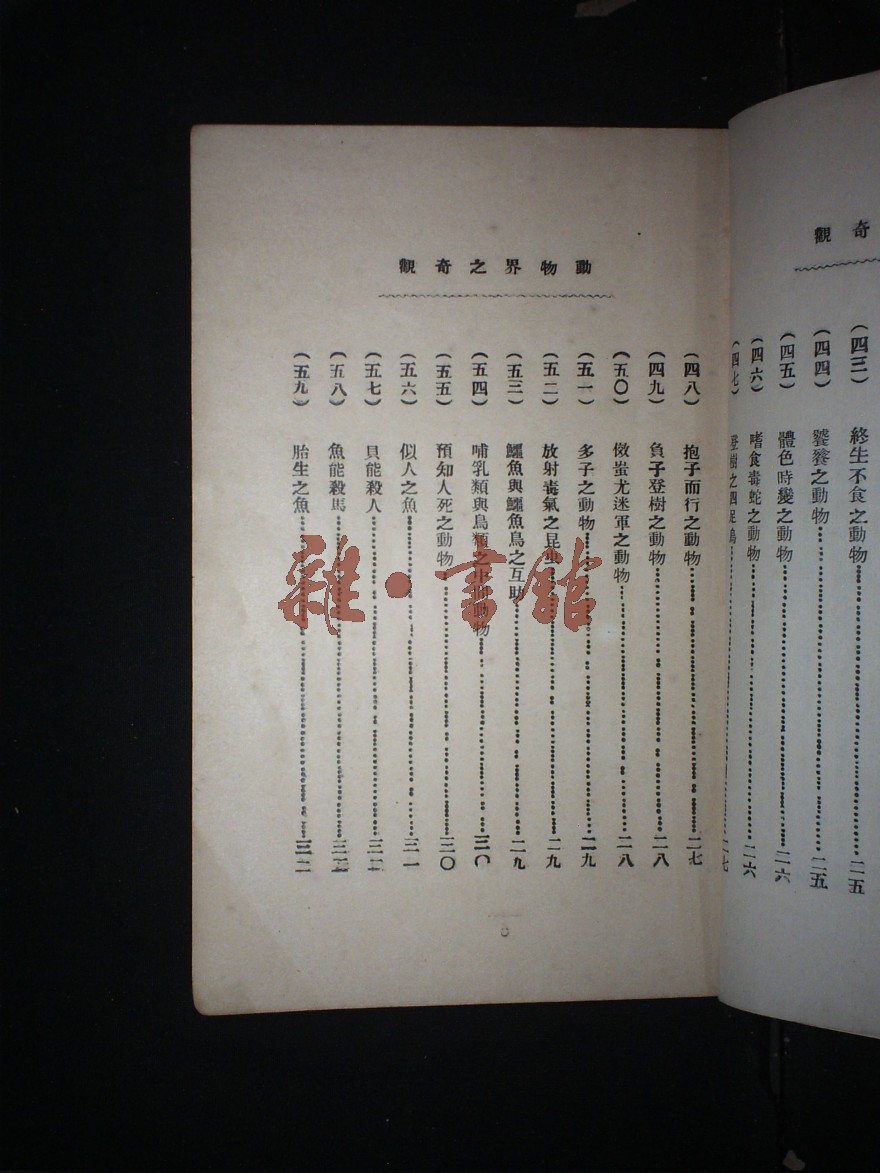 奇觀
(四三) 終生不食之動物 二五
(四四) 饕餮之動物 二五
(四五) 體色時變之動物 二六
(四六) 嗜食毒蛇之動物 二六
(四七) 登樹之四足鳥 二七
動物界之奇觀
(四八) 抱子而行之動物 二七
(四九) 負子登樹之動物 二八
(五〇) 傚蚩尤迷軍之動物 二八
(五一) 多子之動物 二九
(五二) 放射毒氣之昆虫 二九
(五三) 鱷魚與鱷魚鳥之互助 二九
(五四) 哺乳類與鳥類之中間動物 三〇
(五五) 預知人死之動物 三〇
(五六) 似人之魚 三一
(五七) 貝能殺人
(五八) 魚能殺馬
(五九) 胎生之魚 三二
雜·書館